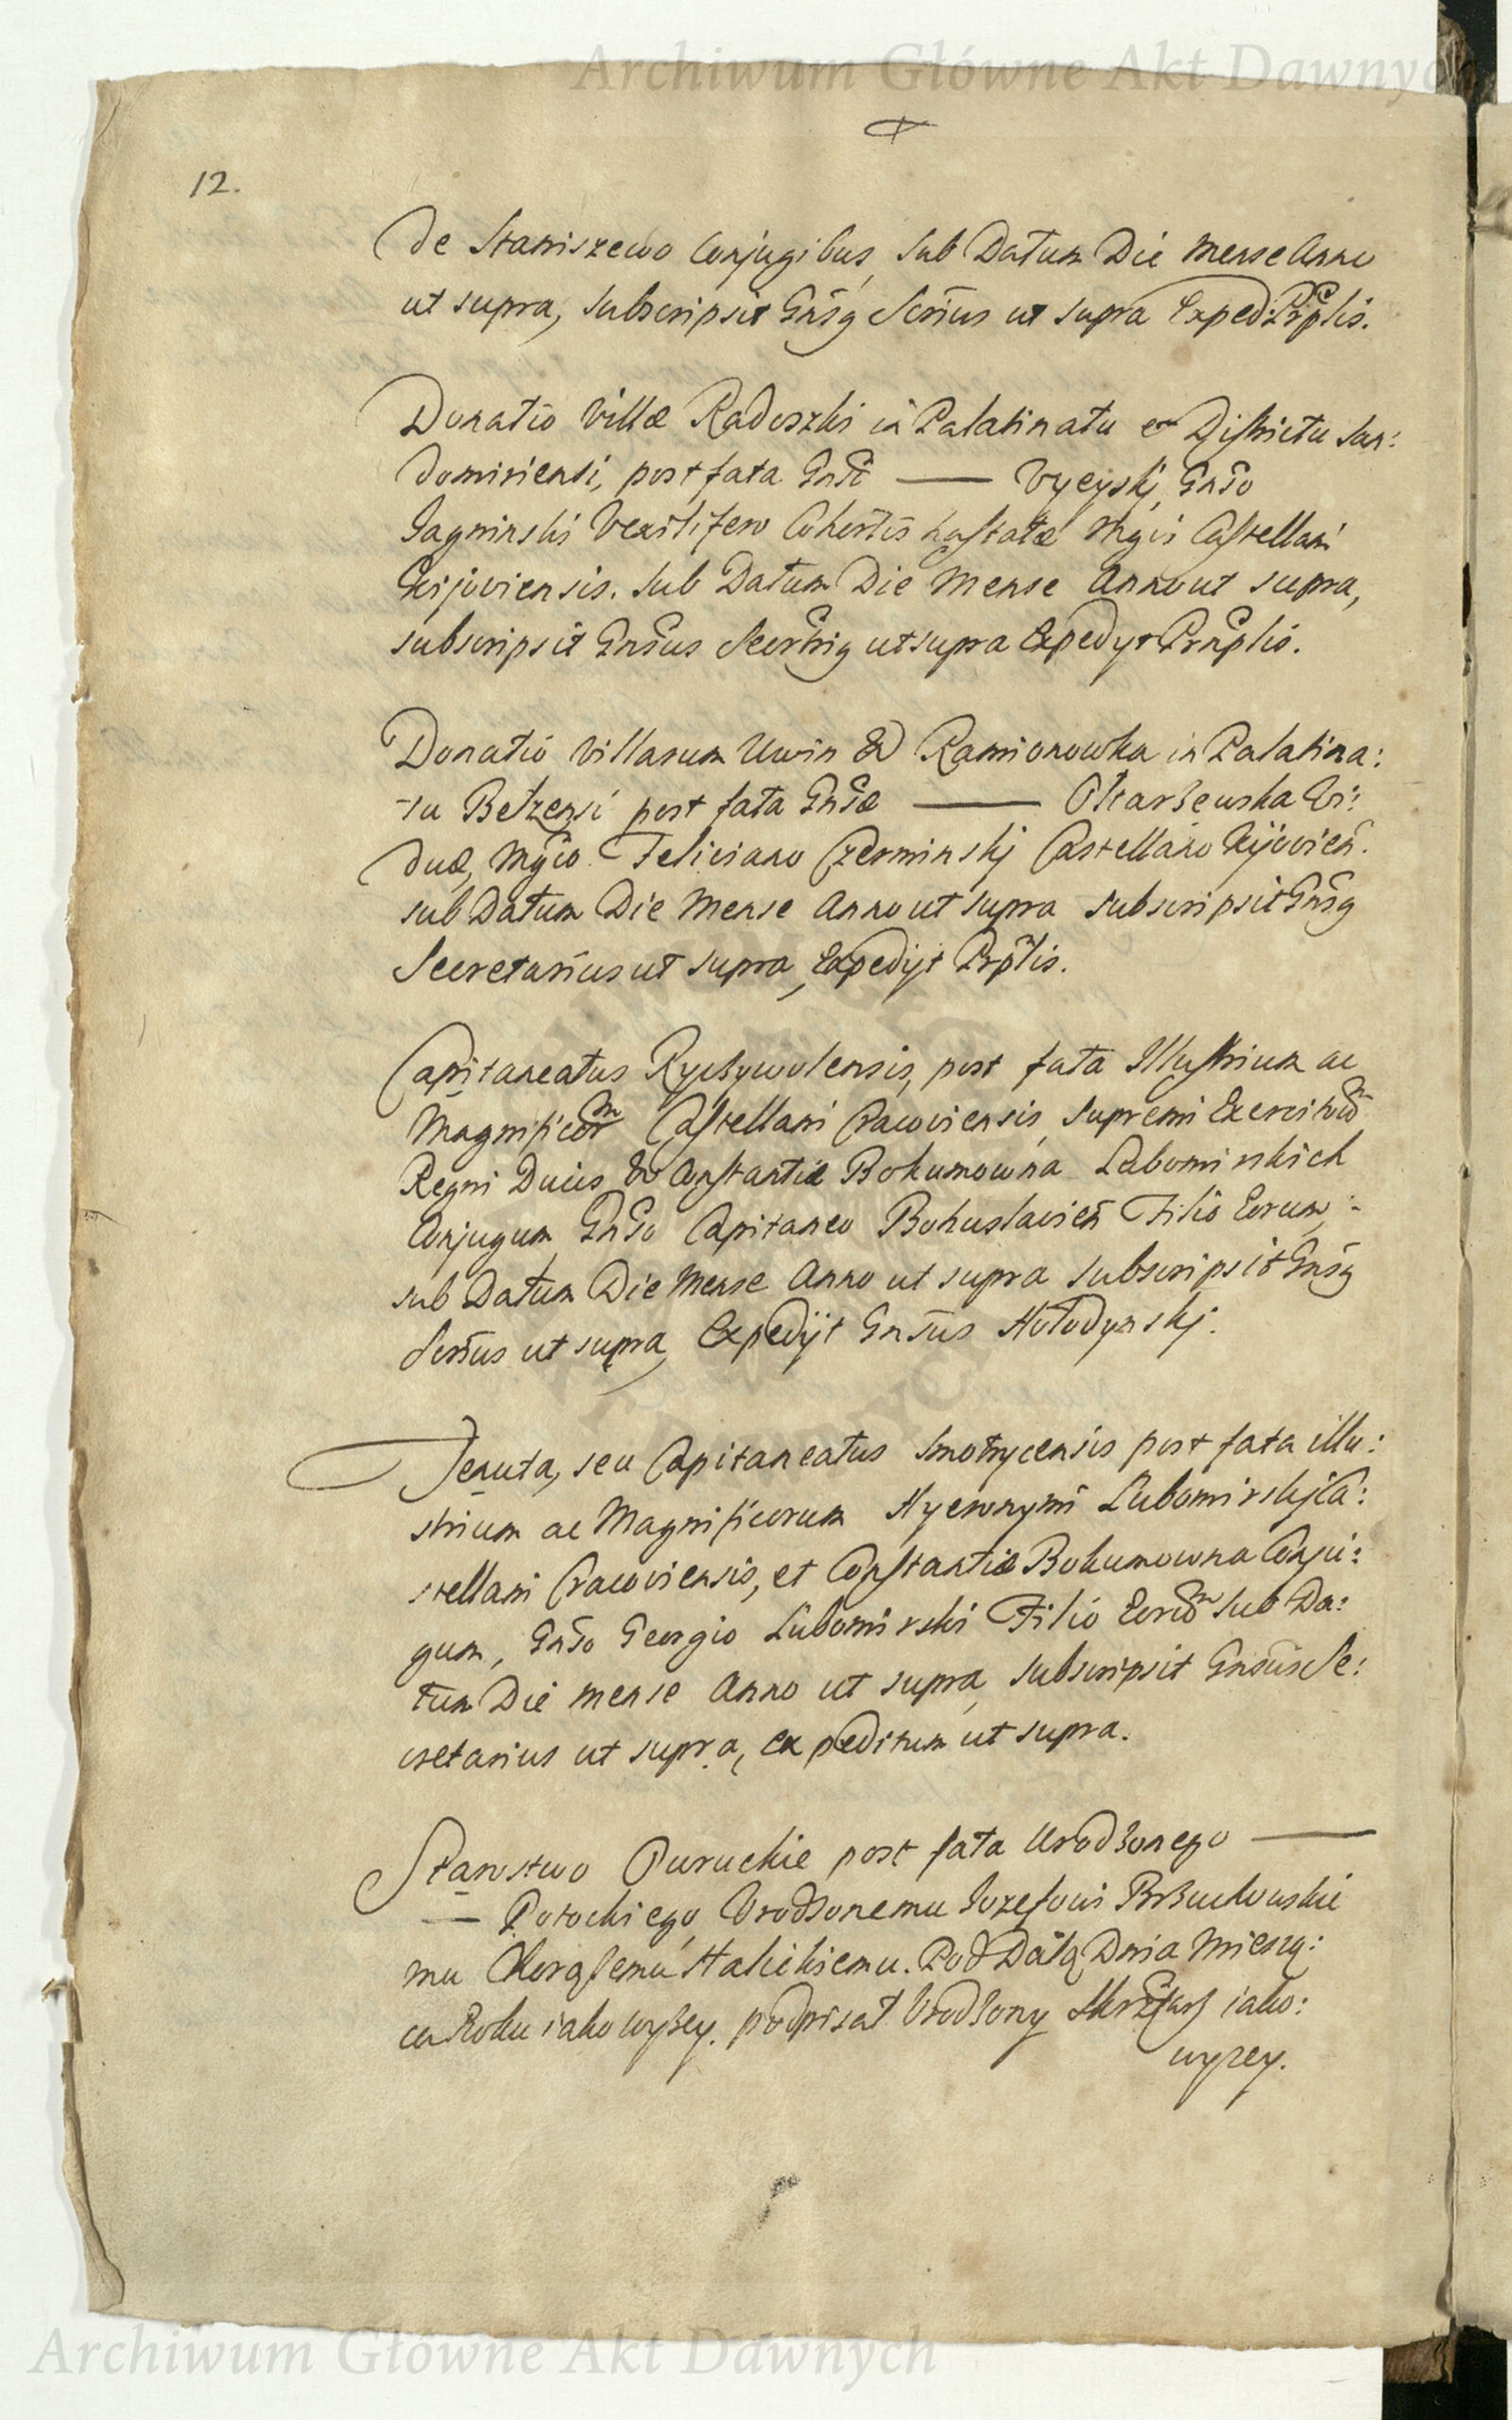 Archiwum Główne Akt Dawnych
12.
De Staniszewo Conjugibus, sub Datum Die Mense Anno
ut supra, subscripsit Gnsg Scrius ut supra Exped: Prplis.
Donatio Villæ Radoszki in Palatinatu et Districtu San:
domiriensi, post fata Gnsi —— Vycyskj, Gnso
Jagninski Vexilifero Cohortis hastatæ Mgci Castellani
Kijoviensis. sub Datum Die Mense Anno ut supra,
subscripsit Gnsus Secrtrig ut supra Expedyt Prnplis.
Donatio Villarum Uwin Et Ramionowka in Palatina:
tu Belzensi post fata Gnsæ —— Okarzewska Vi:
duæ, Mgco Feliciano Czerminskj Castellano Kijovien.
sub Datum Die Mense Anno ut supra subscripsit Gnsg
Secretarius ut supra, Expedijt Prplis.
Capitaneatus Ryczywolensis, post fata Illustrium ac
Magnificorm Castellani Cracoviensis, Supremi Exercituum
Regni Ducis, Et Constantiæ Bokumowna Lubomirskich
Conjugum, Gnso Capitaneo Bohuslavien Filio Eorum,
sub Datum Die Mense Anno ut supra subscripsit Gnsg
Scrius ut supra, Expedijt Gnsus Hołodynskj.
Tenuta, seu Capitaneatus Smotrycensis post fata illu:
strium ac Magnificorum Hyeronymi Lubomirskj Ca:
stellani Cracoviensis, et Constantiæ Bokumowna Conju:
gum, Gnso Georgio Lubomirski Filio Eorum sub Da:
tum Die mense Anno ut supra, subscripsit Gnsus Se:
cretarius ut supra, expeditum ut supra.
Starostwo Owruckie post fata Urodzonego ——
— Potockiego, Urodzonemu Jozefowi Brzuchowskie
mu Chorążemu Halickiemu. Pod Datą Dnia Miesią:
ca Roku iako wyżey. podpisał Urodzony Skrtarz iako:
wyzey.
Archiwum Główne Akt Dawnych